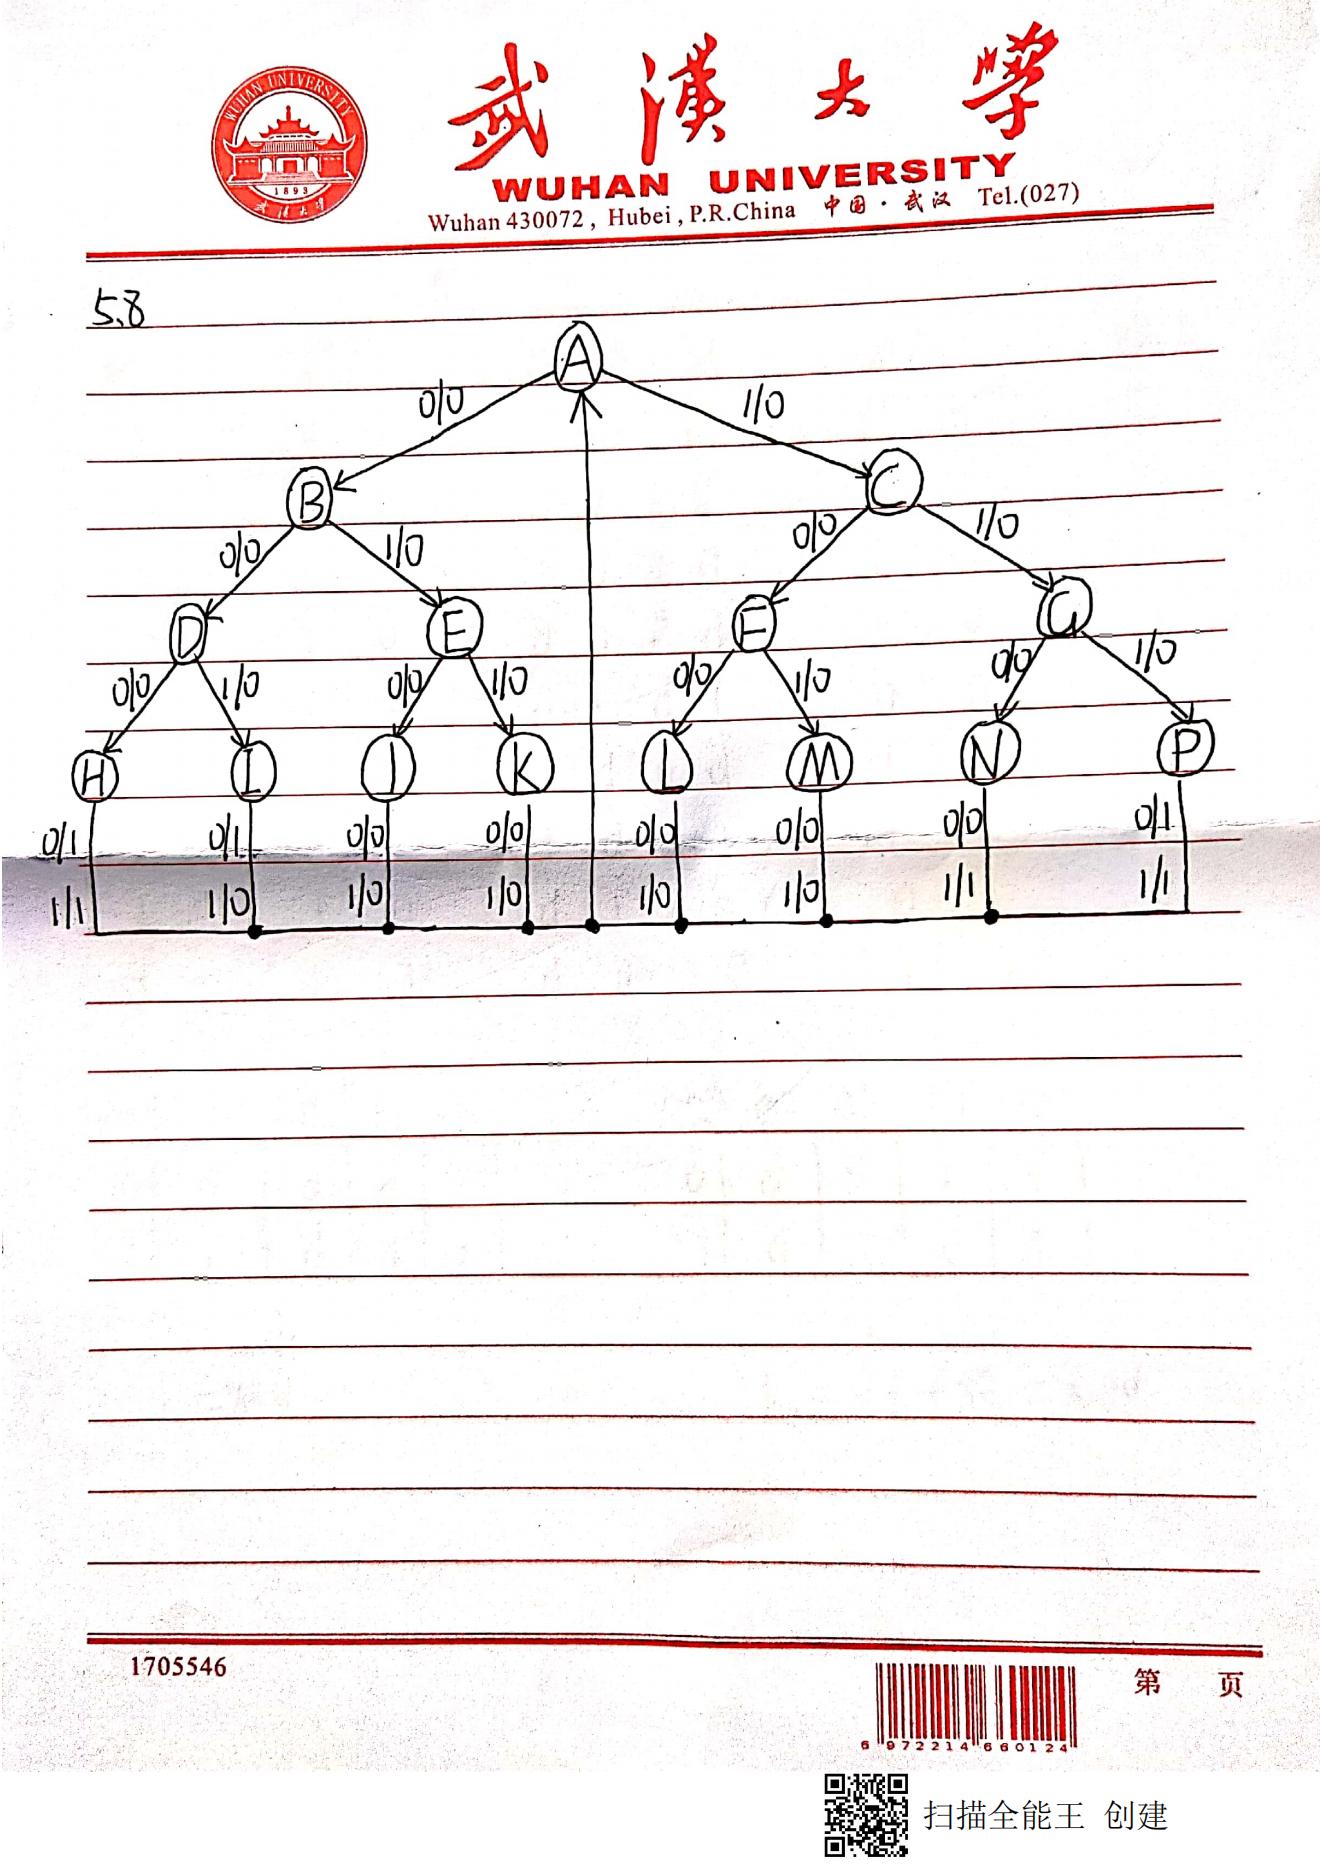 WUHAN UNIVERSITY
1893
武汉大学
武漢大學
WUHAN UNIVERSITY
Wuhan 430072 , Hubei , P.R.China 中国·武汉 Tel.(027)
5.8
A
0/0 1/0
B C
0/0 1/0 0/0 1/0
D E F G
0/0 1/0 0/0 1/0 0/0 1/0 0/0 1/0
H I J K L M N P
0/1 0/1 0/0 0/0 0/0 0/0 0/0 0/1
1/1 1/0 1/0 1/0 1/0 1/0 1/1 1/1
1705546
第 页
6 972214 660124
扫描全能王 创建